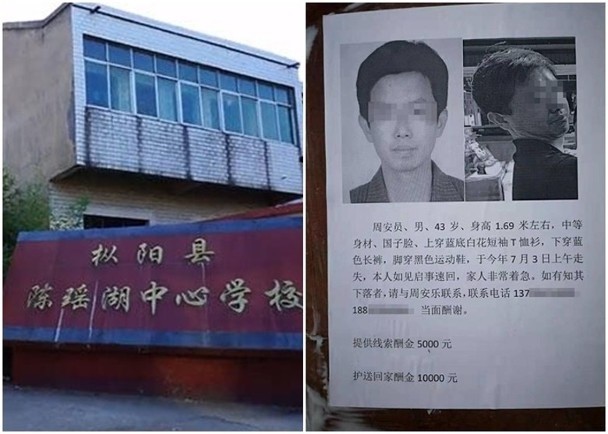 枞阳县
陈瑶湖中心学校
周安员、男、43 岁、身高 1.69 米左右，中等
身材、国子脸、上穿蓝底白花短袖 T 恤衫，下穿蓝
色长裤，脚穿黑色运动鞋，于今年 7 月 3 日上午走
失，本人如见启事速回，家人非常着急，如有知其
下落者，请与周安乐联系，联系电话 137
188 当面酬谢。
提供线索酬金 5000 元
护送回家酬金 10000 元